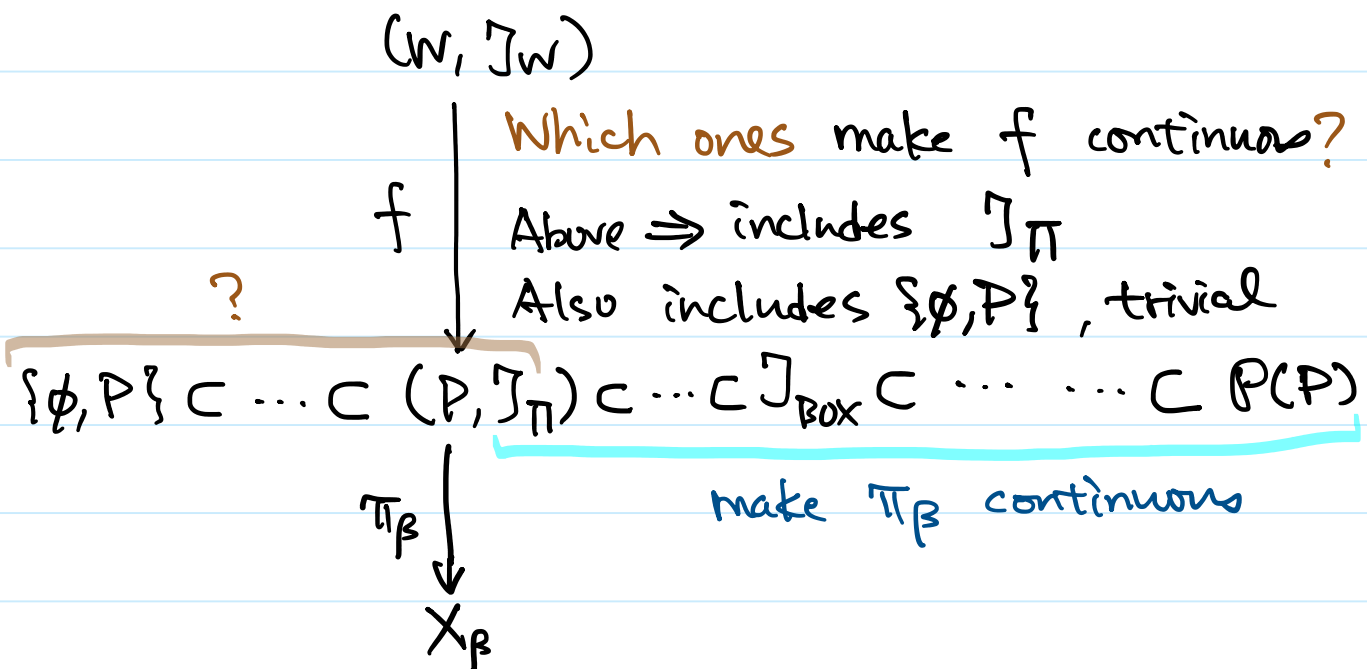 (W, 𝒥_W)
Which ones make f continuous?
f
Above ⇒ includes 𝒥_Π
?
Also includes {∅, P}, trivial
{∅, P} ⊂ ··· ⊂ (P, 𝒥_Π) ⊂ ··· ⊂ 𝒥_BOX ⊂ ··· ··· ⊂ 𝒫(P)
π_β
make π_β continuous
X_β